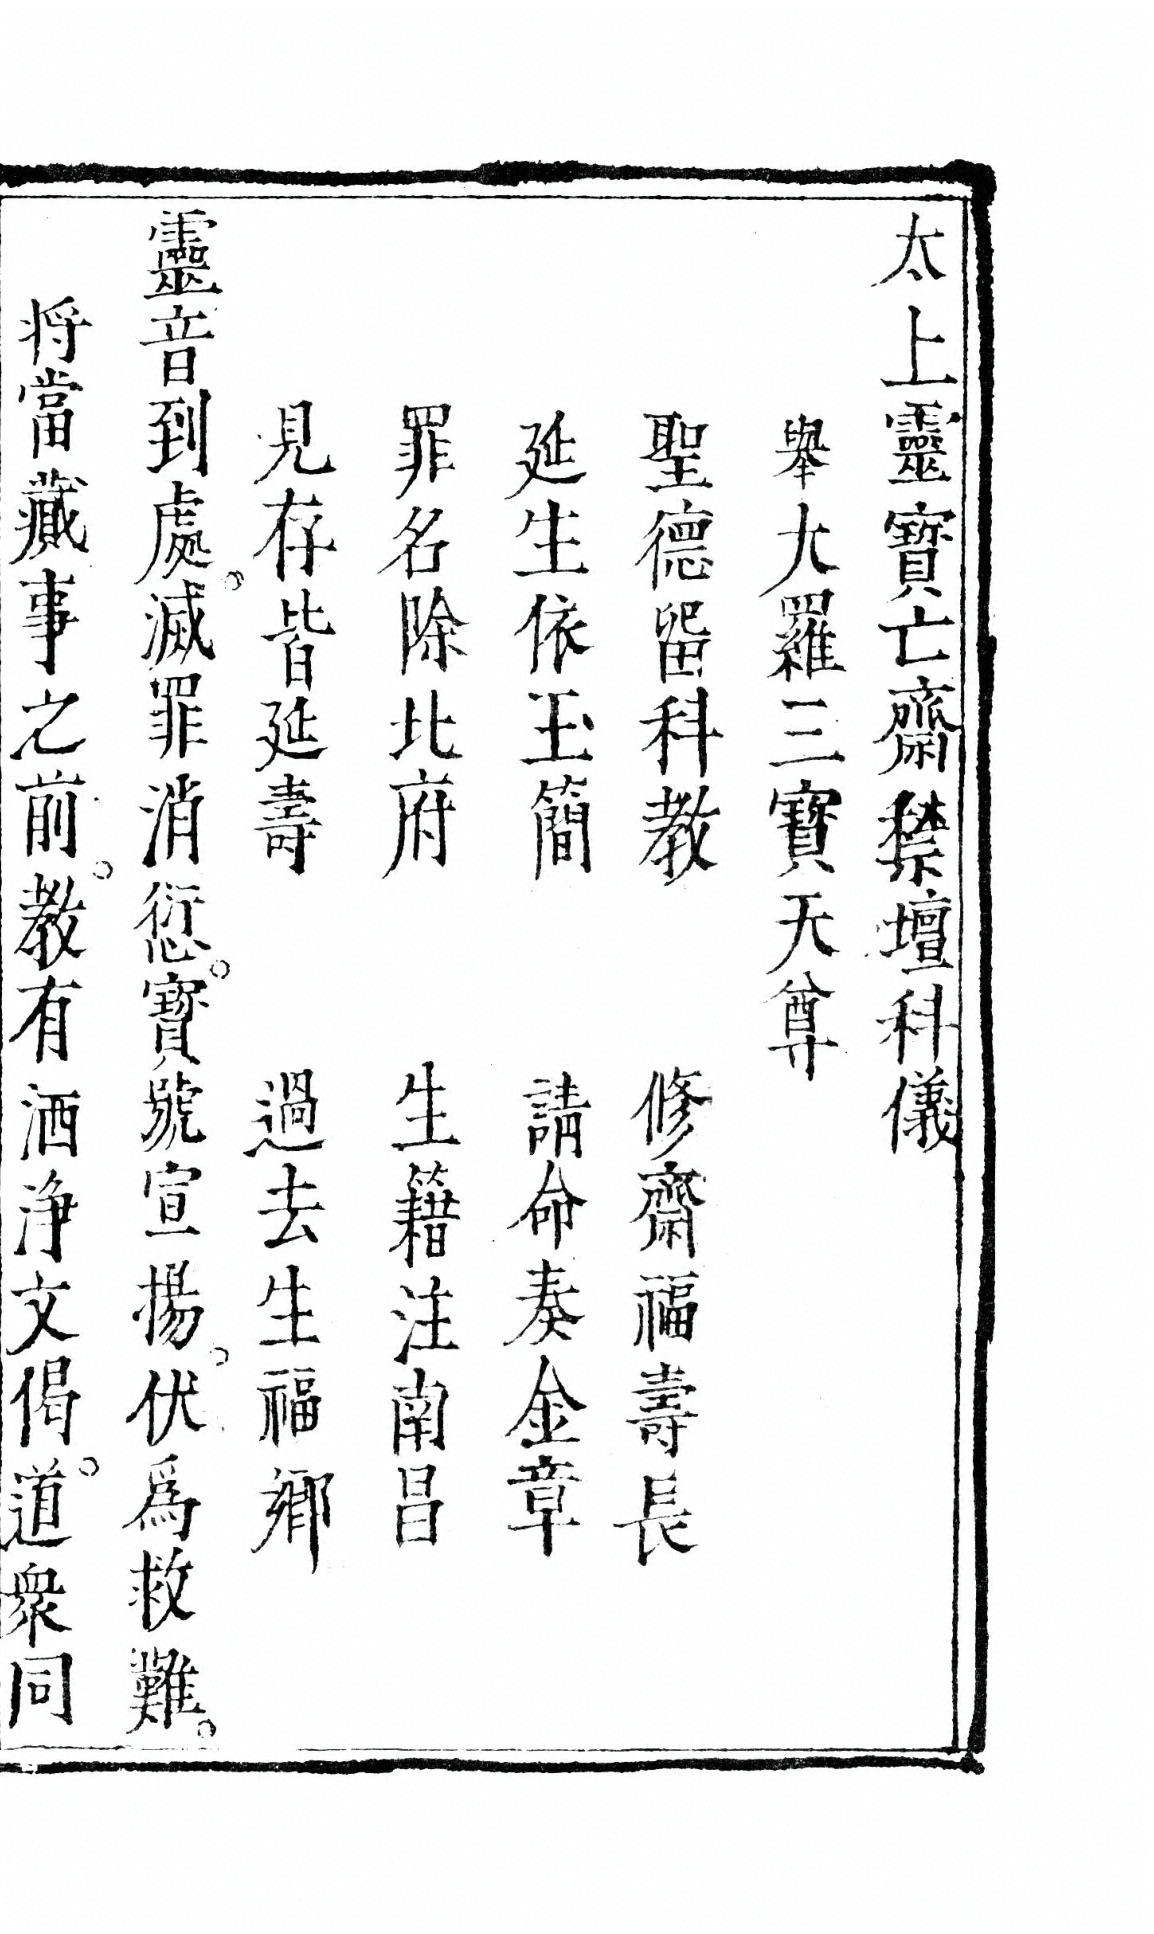 太上靈寶亡齋禁壇科儀
舉大羅三寶天尊
聖德留科教　修齋福壽長
延生依玉簡　請命奏金章
罪名除北府　生籍注南昌
見存皆延壽　過去生福鄉
靈音到處。滅罪消愆。寶號宣揚。伏爲救難。
将當藏事之前。教有洒浄文偈。道衆同